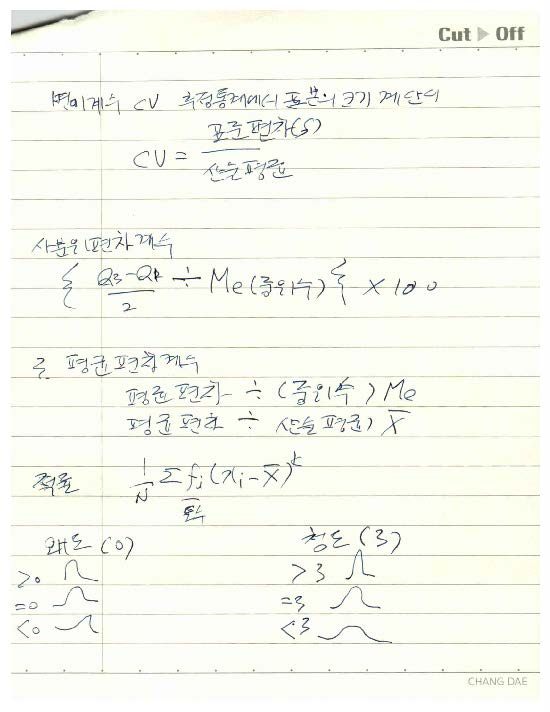 Cut ▶ Off
변이계수 CV 추정통계에서 표본의 크기 계산에
CV = 표준편차(s) / 산술평균
사분위편차계수
{ Q3-Q1 / 2 ÷ Me (중위수) } × 100
평균편차계수
평균편차 ÷ (중위수) Me
평균편차 ÷ 산술평균) X̄
적률 1/N Σ fi (xi - x̄)^k
왜도 (0) 첨도 (3)
>0 >3
=0 =3
<0 <3
CHANG DAE